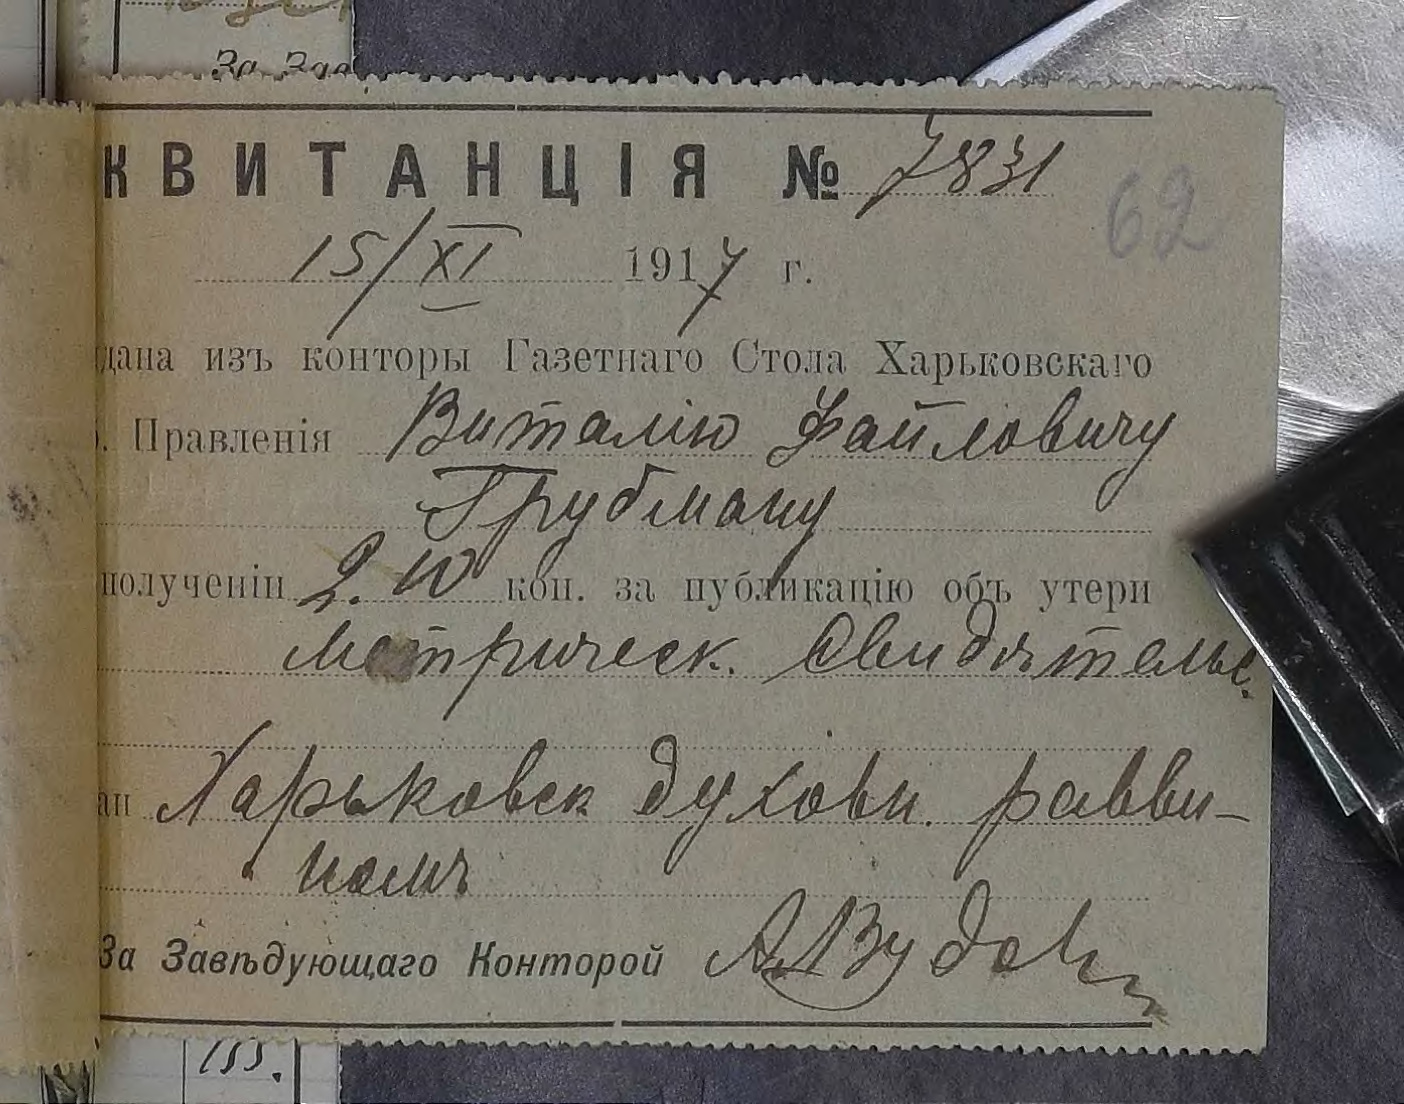 За Зав
КВИТАНЦІЯ № 7831
62
15/XI 1917 г.
дана изъ конторы Газетнаго Стола Харьковскаго
б. Правленія Виталію Файловичу
Грубману
полученіи 2.10 коп. за публикацію объ утери
метрическ. свидѣтельс.
ан Харьковск духовн. равви-
номъ
За Завѣдующаго Конторой
155.